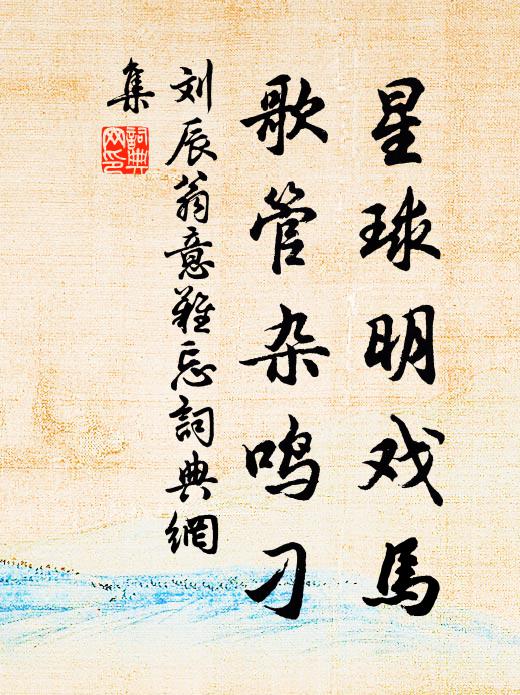 星球明戏马
歌管杂鸣刁
刘辰翁意难忘詞典網
集
詞典
网印